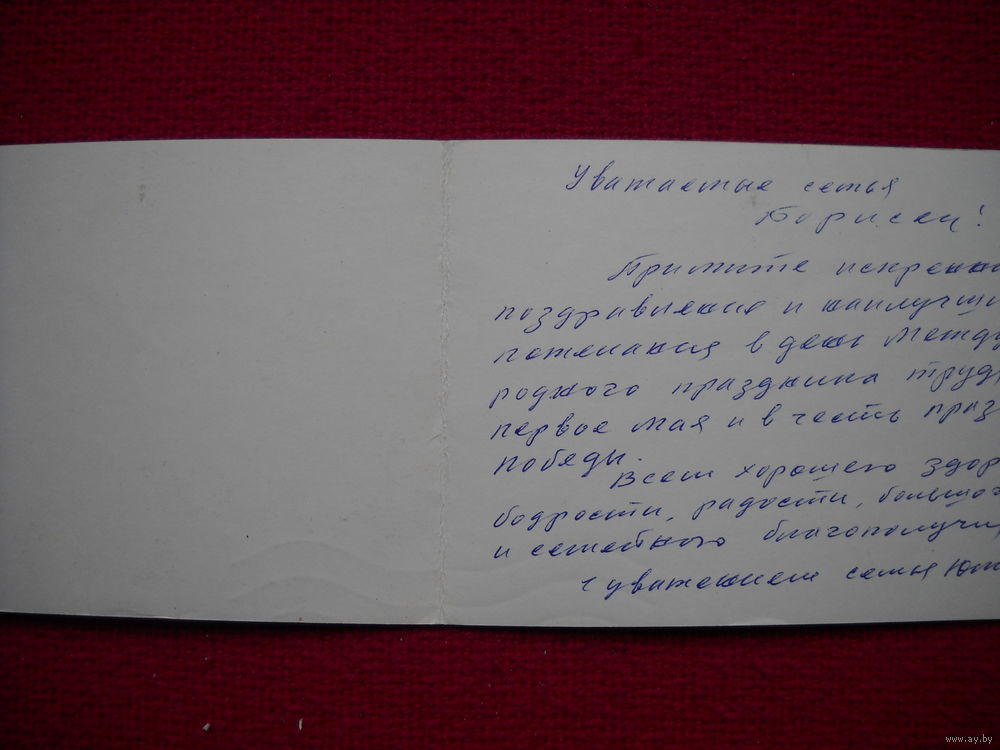 Уважаемые семья
Борисен!
Примите искренн
поздравления и наилучши
пожелания в день Между
родного праздника труд
первое мая и в честь праз
победы.
Всем хорошего здор
бодрости, радости, большог
и семейного благополучи
с уважением семья
www.ay.by